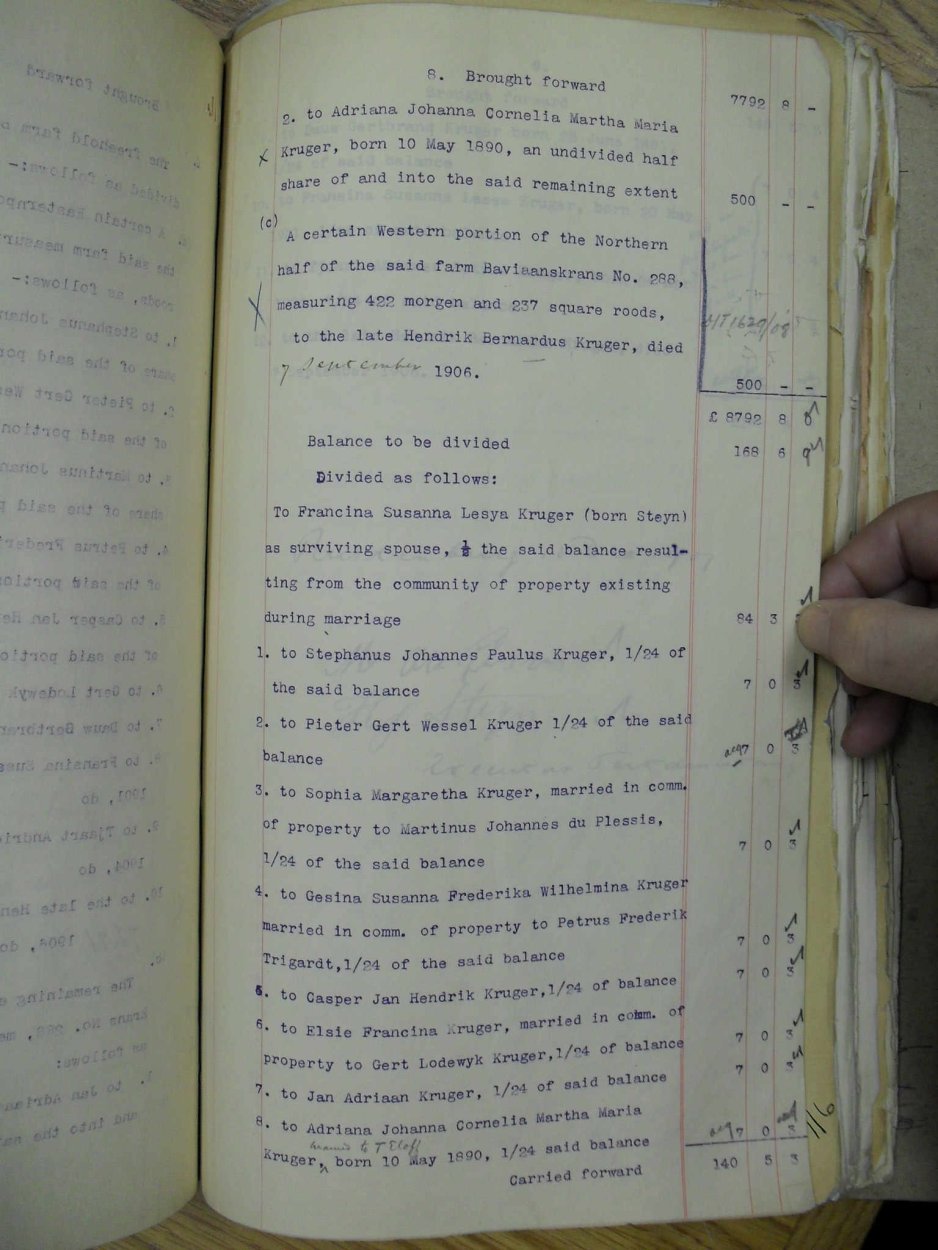 8. Brought forward 7792 8 -
2. to Adriana Johanna Cornelia Martha Maria
x Kruger, born 10 May 1890, an undivided half
share of and into the said remaining extent 500 - -
(c)
A certain Western portion of the Northern
half of the said farm Baviaanskrans No. 288,
X measuring 422 morgen and 237 square roods,
1620/08
to the late Hendrik Bernardus Kruger, died
7 September 1906. 500 - -
£ 8792 8
Balance to be divided 168 6 9
Divided as follows:
To Francina Susanna Lesya Kruger (born Steyn)
as surviving spouse, ½ the said balance resul-
ting from the community of property existing
during marriage 84 3
1. to Stephanus Johannes Paulus Kruger, 1/24 of
the said balance 7 0 3
2. to Pieter Gert Wessel Kruger 1/24 of the said
balance 7 0 3
3. to Sophia Margaretha Kruger, married in comm.
of property to Martinus Johannes du Plessis,
1/24 of the said balance 7 0 3
4. to Gesina Susanna Frederika Wilhelmina Kruger
married in comm. of property to Petrus Frederik
Trigardt,1/24 of the said balance 7 0 3
5. to Casper Jan Hendrik Kruger,1/24 of balance 7 0 3
6. to Elsie Francina Kruger, married in comm. of
property to Gert Lodewyk Kruger,1/24 of balance 7 0 3
7. to Jan Adriaan Kruger, 1/24 of said balance 7 0 3
8. to Adriana Johanna Cornelia Martha Maria
married to T Eloff
Kruger, born 10 May 1890, 1/24 said balance 7 0 3
Carried forward 140 5 3
11/6